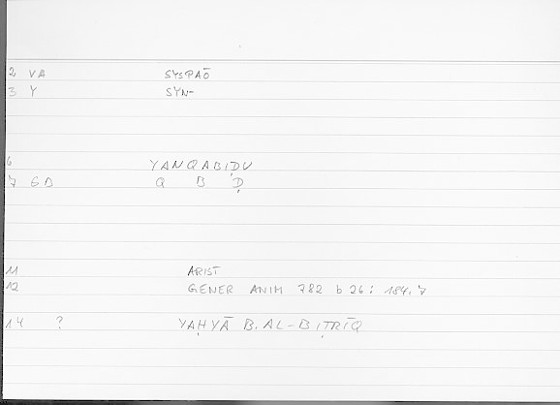 2 VA SYSPAŌ
3 Y SYN-
6 YANQABIḌU
7 GB Q B Ḍ
11 ARIST
12 GENER ANIM 782 b 26 : 184,7
14 ? YAḤYĀ B. AL-BIṬRĪQ